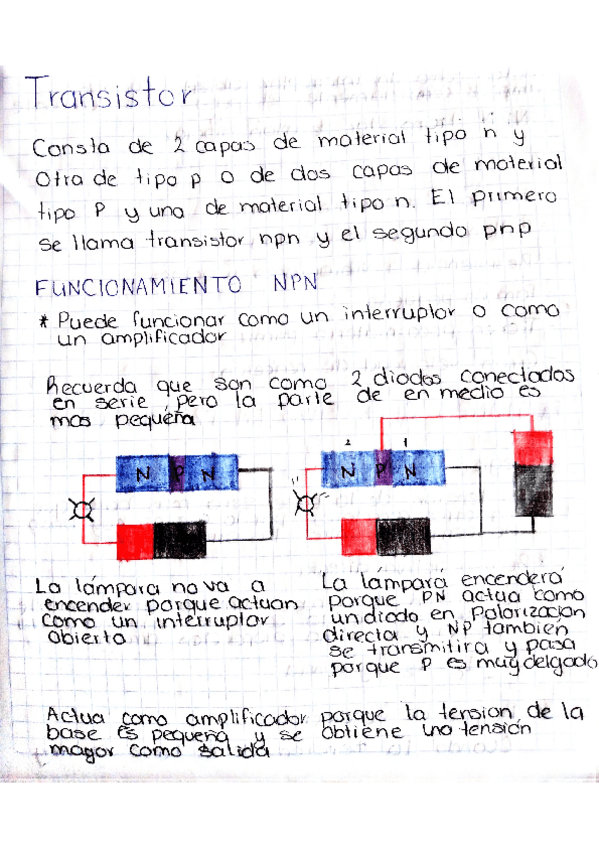 Transistor
Consta de 2 capas de material tipo n y
Otra de tipo p o de dos capas de material
tipo P y una de material tipo n. El primero
se llama transistor npn y el segundo pnp
FUNCIONAMIENTO NPN
* Puede funcionar como un interruptor o como
un amplificador
Recuerda que son como 2 diodos conectados
en serie, pero la parte de en medio es
mas pequeña
N P N
2 1
N P N
La lámpara no va a
encender porque actuan
como un interruptor
abierto
La lámpará encenderá
porque PN actua como
un diodo en Polarización
directa y NP también
se transmitira y pasa
porque P es muy delgado
Actua como amplificador porque la tension de la
base es pequeña y se obtiene una tensión
mayor como salida